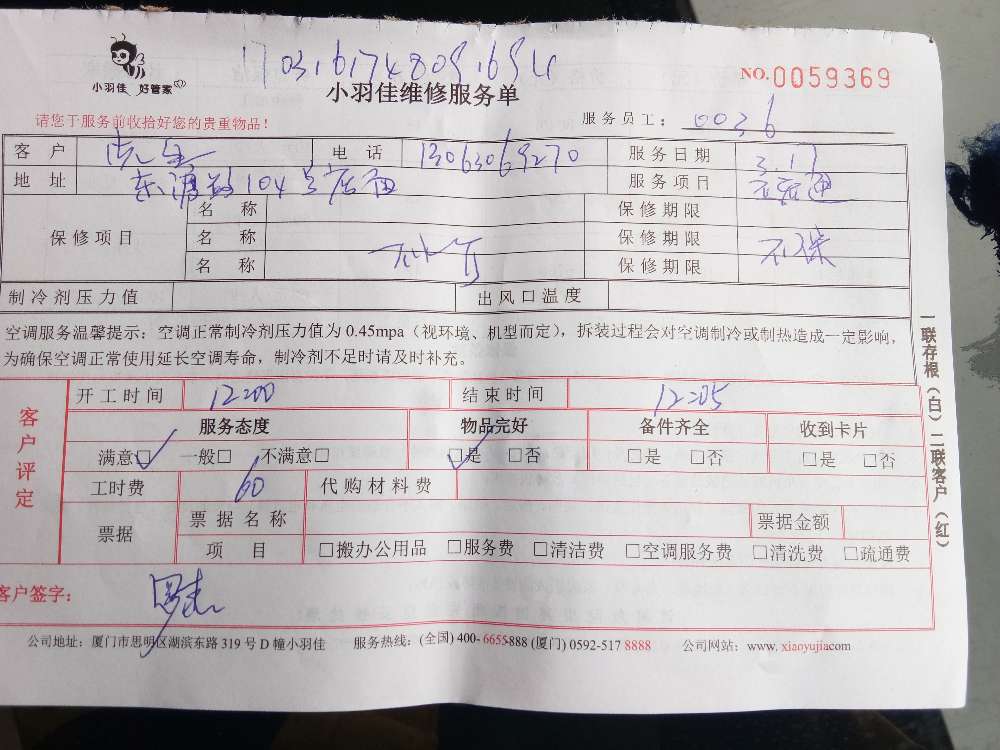 1703161748091694
小羽佳 好管家
小羽佳维修服务单
NO.0059369
请您于服务前收拾好您的贵重物品！
服务员工： 0036
客户 先生 电话 13063069270 服务日期 3.17
地址 东渡路104号店面 服务项目
保修项目 名称 保修期限
名称 保修期限 不保
名称 保修期限
制冷剂压力值 出风口温度
空调服务温馨提示：空调正常制冷剂压力值为 0.45mpa（视环境、机型而定），拆装过程会对空调制冷或制热造成一定影响，
为确保空调正常使用延长空调寿命，制冷剂不足时请及时补充。
一联存根（白）二联客户（红）
客户评定
开工时间 12:00 结束时间 12:05
服务态度 物品完好 备件齐全 收到卡片
满意□ 一般□ 不满意□ □是 □否 □是 □否 □是 □否
工时费 60 代购材料费
票据 票据名称 票据金额
项目 □搬办公用品 □服务费 □清洁费 □空调服务费 □清洗费 □疏通费
客户签字：
公司地址：厦门市思明区湖滨东路 319 号 D 幢小羽佳 服务热线：(全国) 400-6655-888 (厦门) 0592-517 8888 公司网站：www.xiaoyujia.com